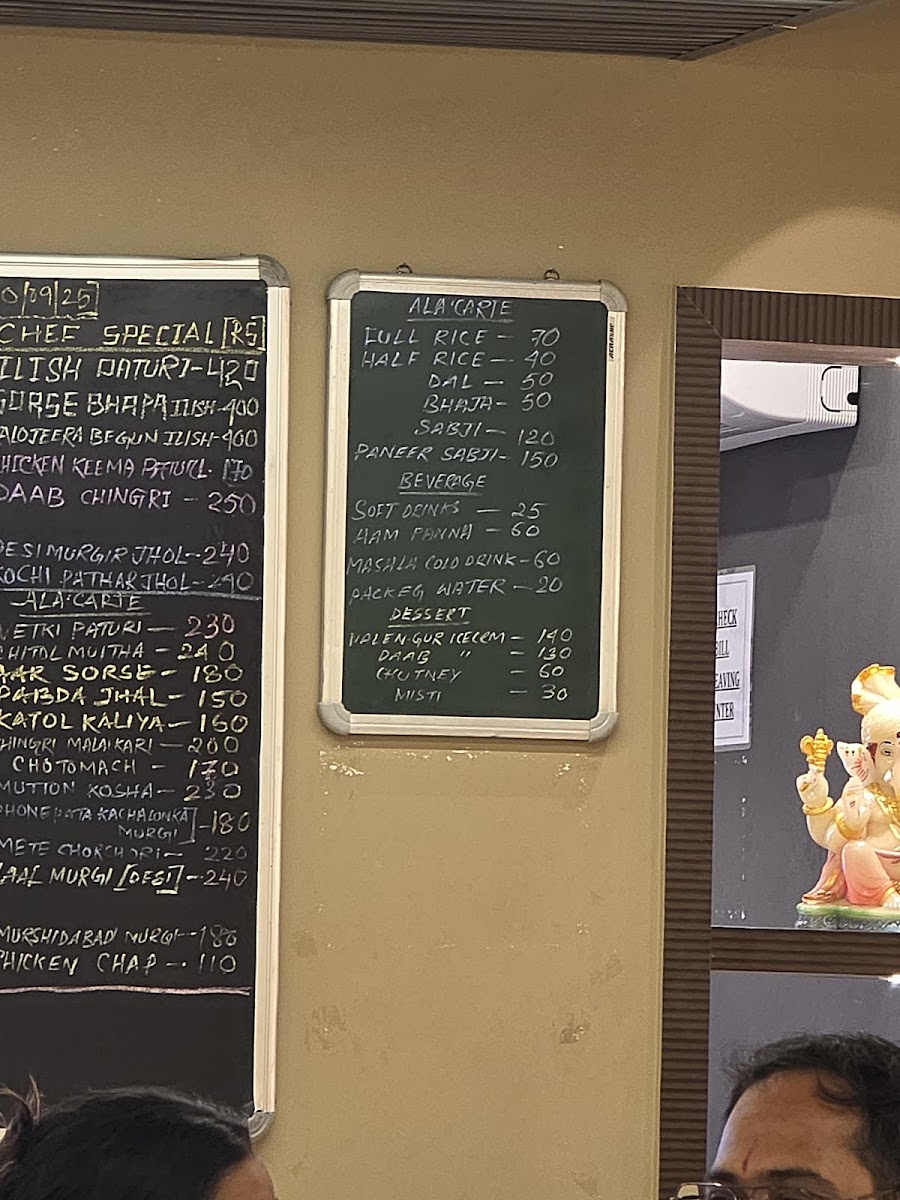 0/09/25
CHEF SPECIAL [RS]
ILISH PATURI-420
SORSE BHAPA ILISH-400
ALOJEERA BEGUN ILISH-400
HICKEN KEEMA PATURI-170
DAAB CHINGRI - 250
DESI MURGIR JHOL-240
KOCHI PATHAR JHOL-240
ALA'CARTE
VETKI PATURI - 230
CHITOL MUITHA - 240
AAR SORSE - 180
PABDA JHAL - 150
KATOL KALIYA - 160
HINGRI MALAIKARI - 200
CHOTOMACH - 170
MUTTON KOSHA - 230
DHONEPATA KACHALONKA
MURGI]-180
METE CHORCHORI - 220
LAAL MURGI [DESI] - 240
MURSHIDABAD MURGI-180
CHICKEN CHAP - 110
ALA'CARTE
FULL RICE - 70
HALF RICE - 40
DAL - 50
BHAJA - 50
SABJI - 120
PANEER SABJI - 150
BEVERAGE
SOFT DRINKS - 25
AAM PANNA - 60
MASALA COLD DRINK - 60
PACKEG WATER - 20
DESSERT
NALEN-GUR ICECRM - 140
DAAB " - 130
CHUTNEY - 60
MISTI - 30
HECK
BILL
EAVING
NTER